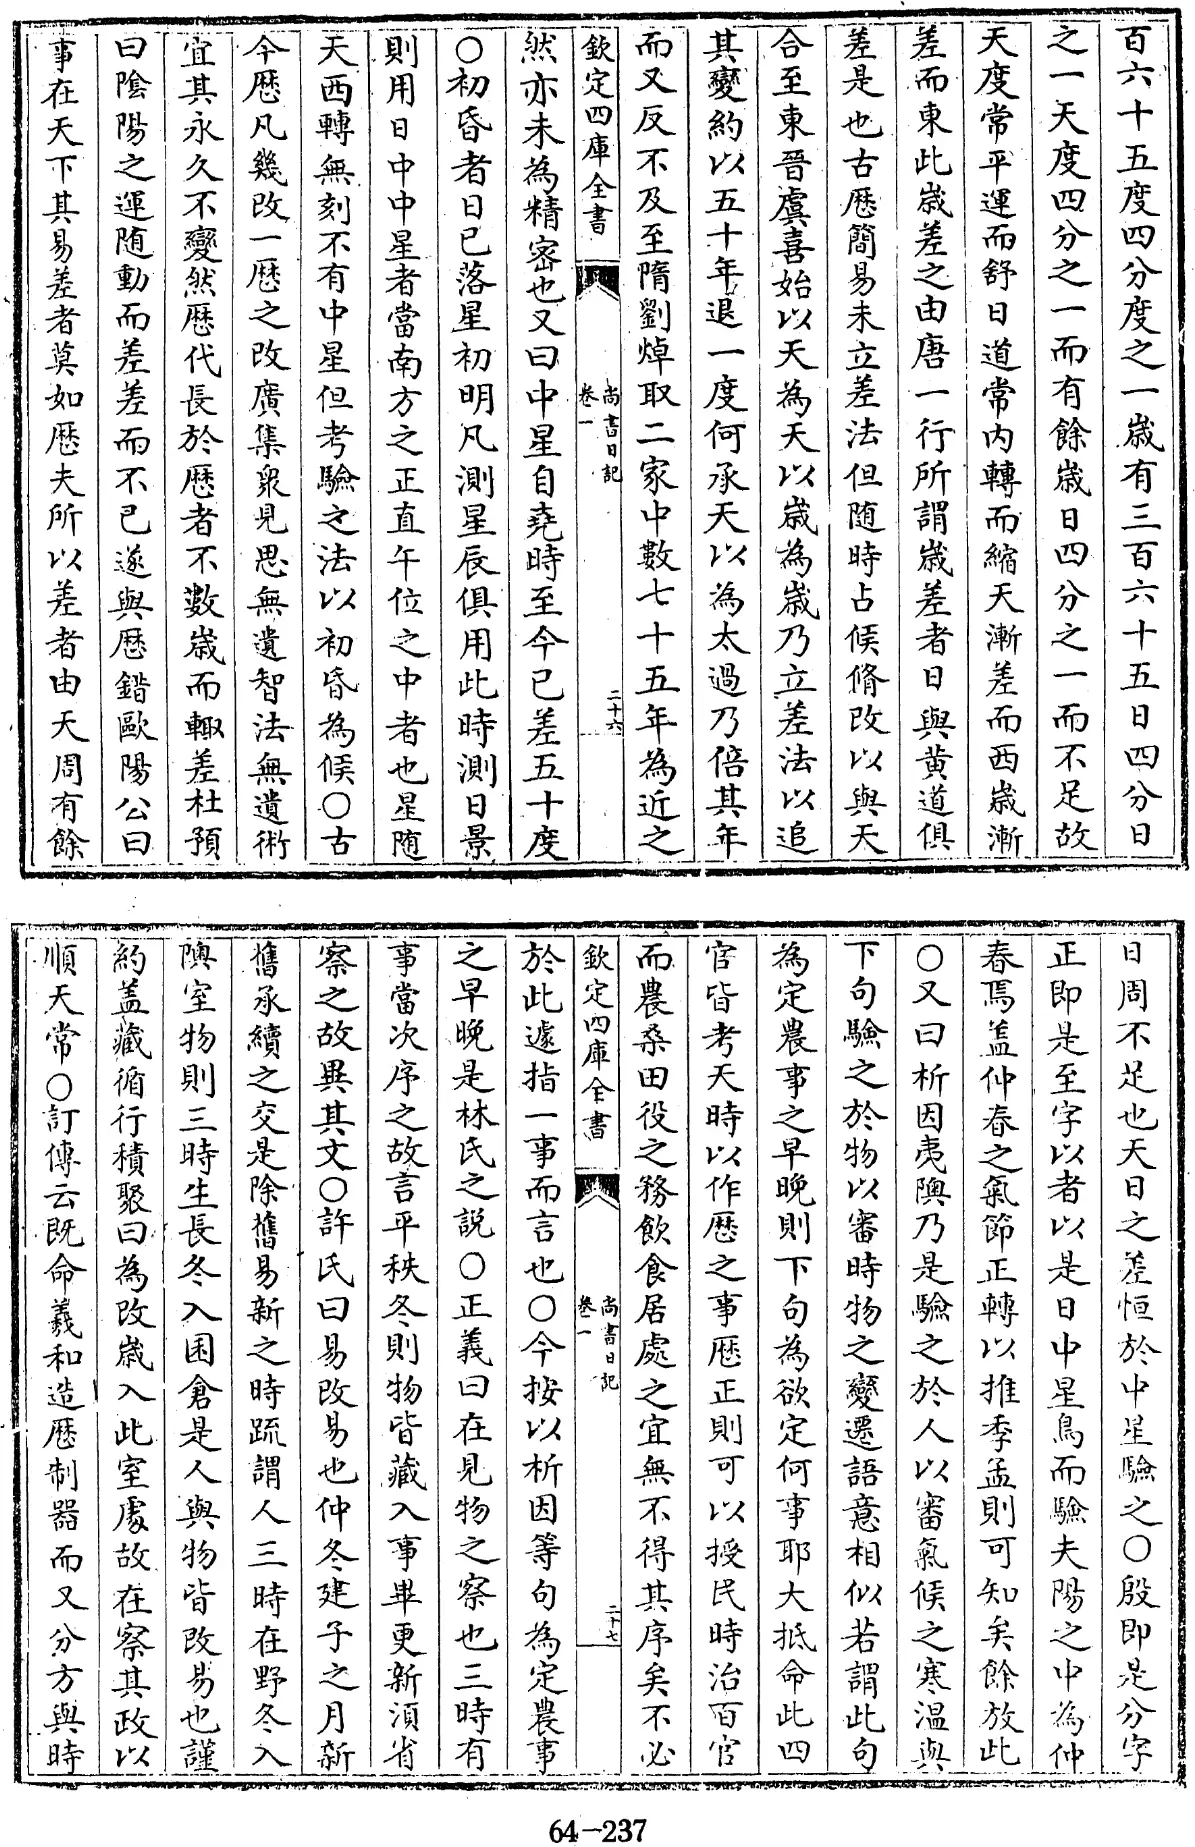 百六十五度四分度之一歳有三百六十五日四分日
之一天度四分之一而有餘歳日四分之一而不足故
天度常平運而舒日道常内轉而縮天漸差而西歳漸
差而東此歳差之由唐一行所謂歳差者日與黄道俱
差是也古厯簡易未立差法但随時占候脩改以與天
合至東晉虞喜始以天為天以歳為歳乃立差法以追
其變約以五十年退一度何承天以為太過乃倍其年
而又反不及至隋劉焯取二家中數七十五年為近之
欽定四庫全書
尚書日記
卷一
二十六
然亦未為精宻也又曰中星自堯時至今已差五十度
○初昏者日已落星初明凡測星辰俱用此時測日景
則用日中中星者當南方之正直午位之中者也星随
天西轉無刻不有中星但考驗之法以初昏為候○古
今厯凡幾改一厯之改廣集衆見思無遺智法無遺術
宜其永久不變然厯代長於厯者不數歳而輙差杜預
曰隂陽之運随動而差差而不已遂與厯錯歐陽公曰
事在天下其易差者莫如厯夫所以差者由天周有餘
日周不足也天日之差恒於中星驗之○殷即是分字
正即是至字以者以是日中星鳥而驗夫陽之中為仲
春焉盖仲春之氣節正轉以推季孟則可知矣餘放此
○又曰析因夷隩乃是驗之於人以審氣候之寒温與
下句驗之於物以審時物之變遷語意相似若謂此句
為定農事之早晚則下句為欲定何事耶大抵命此四
官皆考天時以作厯之事厯正則可以授民時治百官
而農桑田役之務飲食居處之宜無不得其序矣不必
欽定四庫全書
尚書日記
卷一
二十七
於此遽指一事而言也○今按以析因等句為定農事
之早晚是林氏之説○正義曰在見物之察也三時有
事當次序之故言平秩冬則物皆藏入事畢更新須省
察之故異其文○許氏曰易改易也仲冬建子之月新
舊承續之交是除舊易新之時疏謂人三時在野冬入
隩室物則三時生長冬入囷倉是人與物皆改易也謹
約盖藏循行積聚曰為改歳入此室處故在察其政以
順天常○訂傳云既命羲和造厯制器而又分方與時
64-237